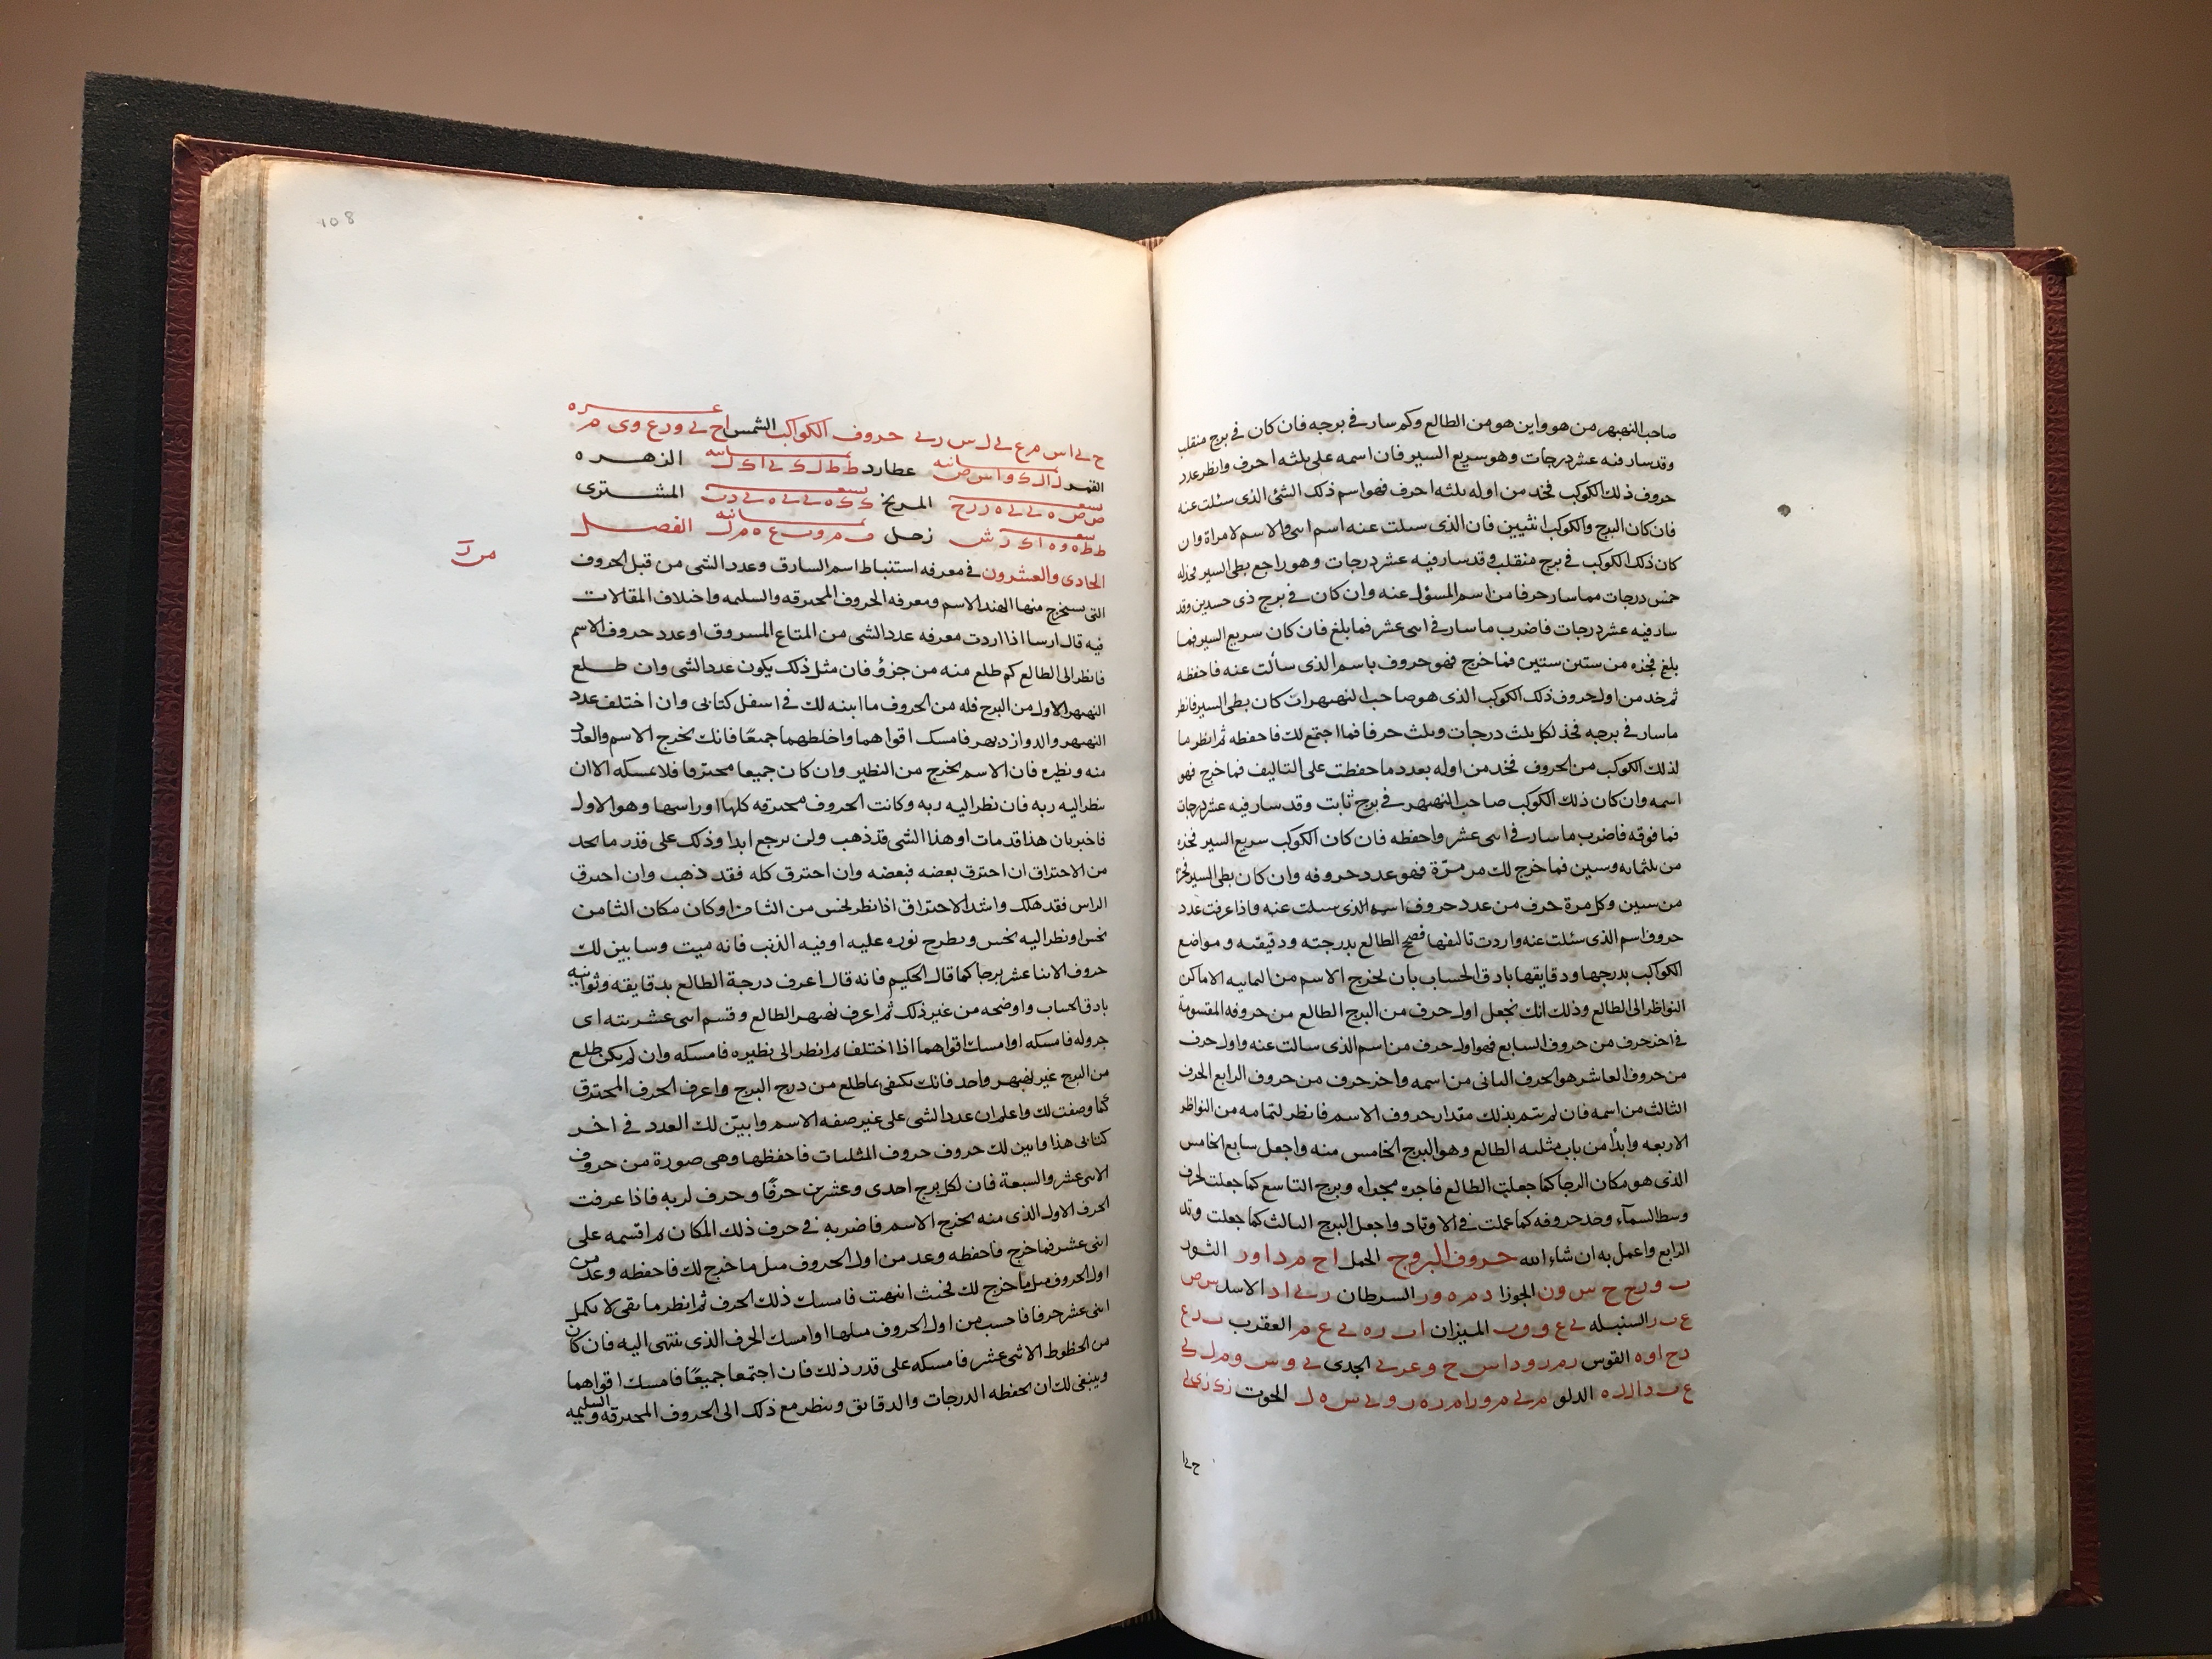 صاحب النهبهر من هو واين هو من الطالع وكم سار في برجه فان كان في برج منقلب
وقد سار فيه عشر درجات وهو سريع السير فان اسمه على ثلثه احرف وانظر عدد
حروف ذلك الكوكب فخذ من اوله ثلثه احرف فهو اسم ذلك الشئ الذى سئلت عنه
فان كان البرج والكوكب انثيين فان الذى سئلت عنه اسم انثى والاسم لامراة وان
كان ذلك الكوكب في برج منقلب وقد سار فيه عشر درجات وهو راجع بطى السير فخذ له
خمس درجات مما سار حرفا من اسم المسؤل عنه وان كان في برج ذى جسدين وقد
سار فيه عشر درجات فاضرب ما سار في اثنى عشر فما بلغ فان كان سريع السير فما
بلغ فخذه من ستين ستين فما خرج فهو حروف باسم الذى سألت عنه فاحفظه
ثم خذ من اول حروف ذلك الكوكب الذى هو صاحب النهبهر ان كان بطى السير فانظر
ما سار في برجه فخذ لكل ثلث درجات وثلث حرفا فما اجتمع لك فاحفظه ثم انظر ما
لذلك الكوكب من الحروف فخذ من اوله بعدد ما حفظت على التاليف فما خرج فهو
اسمه وان كان ذلك الكوكب صاحب النهبهر في برج ثابت وقد سار فيه عشر درجات
فما فوقه فاضرب ما سار في اثنى عشر واحفظه فان كان الكوكب سريع السير فخذه
من ثلثمايه وستين فما خرج لك من مرّة فهو عدد حروفه وان كان بطى السير فخذ
من ستين وكل مرة حرف من عدد حروف اسم الذى سئلت عنه واذا عرفت عدد
حروف اسم الذى سئلت عنه واردت تاليفها فصحح الطالع بدرجته ودقيقته ومواضع
الكواكب بدرجها ودقايقها بادق الحساب بان تخرج الاسم من الثمانيه الاماكن
النواظر الى الطالع وذلك انك تجعل اول حرف من البرج الطالع من حروفه المقسومة
في اخر حرف من حروف السابع فهو اول حرف من اسم الذى سالت عنه واول حرف
من حروف العاشر هو الحرف الثانى من اسمه واخر حرف من حروف الرابع الحرف
الثالث من اسمه فان لم يتم بذلك مقدار حروف الاسم فانظر لتمامه من النواظر
الاربعه وابدأ من باب مثلثه الطالع وهو البرج الخامس منه واجعل سابع الخامس
الذى هو مكان الرجا كما جعلت الطالع فاجره مجراه وبرج التاسع كما جعلت لحرف
وسط السمآء وخذ حروفه كما عملت في الاوتاد واجعل البرج الثالث كما جعلت وتد
الرابع واعمل به ان شاء الله حروف البروج الحمل اح م د ا و ر الثور
الجوزا د م ه و ر السرطان الاسد
السنبله الميزان العقرب
د ح ا و ه القوس الجدى
الدلو الحوت
حروف الكواكب الشمس
القمر عطارد الزهره
المريخ المشترى
زحل الفصل
الحادى والعشرون في معرفه استنباط اسم السارق وعدد الشى من قبل الحروف
التى يستخرج منها الهند الاسم ومعرفه الحروف المحترقه والسليمه واختلاف المقالات
فيه قال ارسا اذا اردت معرفه عدد الشى من المتاع المسروق او عدد حروف الاسم
فانظر الى الطالع كم طلع منه من جزؤ فان مثل ذلك يكون عدد الشى وان طلع
النهبهر الاول من البرج فله من الحروف ما ابينه لك في اسفل كتابى وان اختلف عدد
النهبهر والدوازدبهر فامسك اقواهما واخلطهما جميعًا فانك تخرج الاسم والعدد
منه ونظيره فان الاسم يخرج من النظير وان كان جميعا محترقا فلا تمسكه الا ان
ينظر اليه ربه فان نظر اليه ربه وكانت الحروف محترقه كلها او راسها وهو الاول
فاخبر بان هذا قد مات او هذا الشى قد ذهب ولن يرجع ابدا وذلك على قدر ما تجد
من الاحتراق ان احترق بعضه فبعضه وان احترق كله فقد ذهب وان احترق
الراس فقد هلك واشد الاحتراق اذا نظر نحس من الثامن او كان مكان الثامن
نحس او نظر اليه نحس ويطرح نوره عليه او فيه الذنب فانه ميت وسابين لك
حروف الاثنا عشر برجا كما قال الحكيم فانه قال اعرف درجة الطالع بدقايقه وثوانيه
بادق الحساب واوضحه من غير ذلك ثم اعرف نهبهر الطالع وقسم اثنى عشريته اى
جروله فامسكه او امسك اقواهما اذا اختلفا ثم انظر الى نظيره فامسكه وان لم يكن طلع
من البرج غير نهبهر واحد فانك تكتفى بما طلع من درج البرج واعرف الحرف المحترق
كما وصفت لك واعلم ان عدد الشى على غير صفه الاسم وابيّن لك العدد في اخر
كتابى هذا وابين لك حروف حروف المثلثات فاحفظها وهى صورة من حروف
الاثنى عشر والسبعة فان لكل برج احدى وعشرين حرفًا وحرف لربه فاذا عرفت
الحرف الاول الذى منه يخرج الاسم فاضربه في حرف ذلك المكان ثم اقسمه على
اثنى عشر فما خرج فاحفظه وعد من اول الحروف مثل ما خرج لك فاحفظه وعد من
اول الحروف مثل ما خرج لك فحيث انتهت فامسك ذلك الحرف ثم انظر ما بقى لا يكمل
اثنى عشر حرفا فاحسب من اول الحروف مثلها او امسك الحرف الذى ينتهى اليه فان كان
من الحظوظ الاثنى عشر فامسكه على قدر ذلك فان اجتمعا جميعًا فامسك اقواهما
وينبغى لك ان تحفظه الدرجات والدقائق وينظر مع ذلك الى الحروف المحترقه والسليمه
108